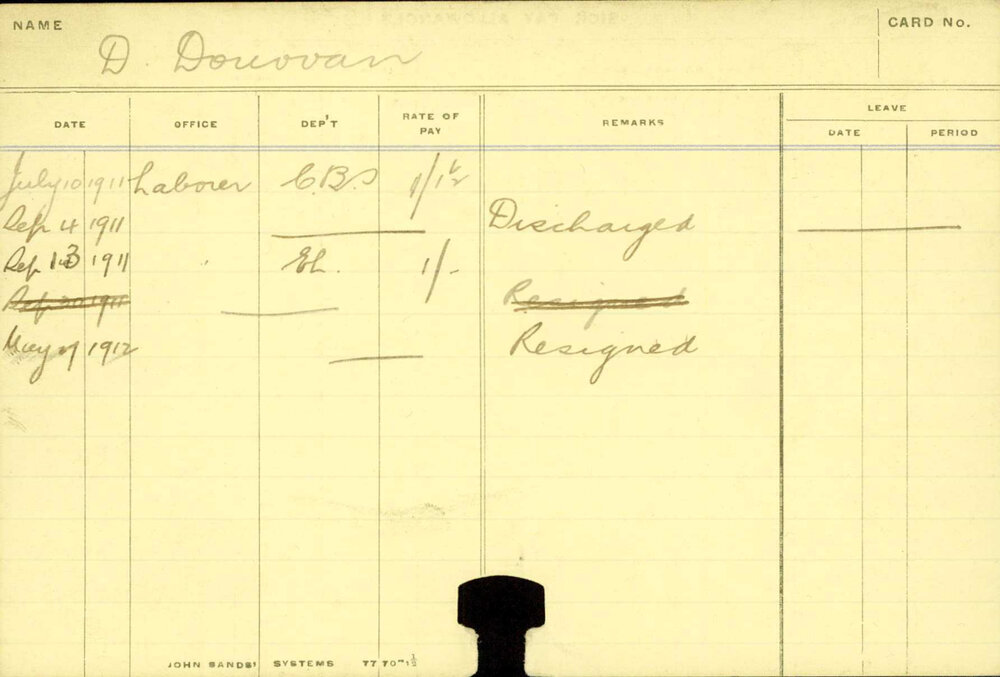 NAME
D. Donovan
CARD No.
DATE OFFICE DEP'T RATE OF PAY REMARKS LEAVE
DATE PERIOD
July 10 1911 Laborer C.B.S 1/1½
Sep 4 1911 Discharged
Sep 13 1911 " EL. 1/-
Sep 20 1911 Resigned
May 1912 Resigned
JOHN SANDS' SYSTEMS